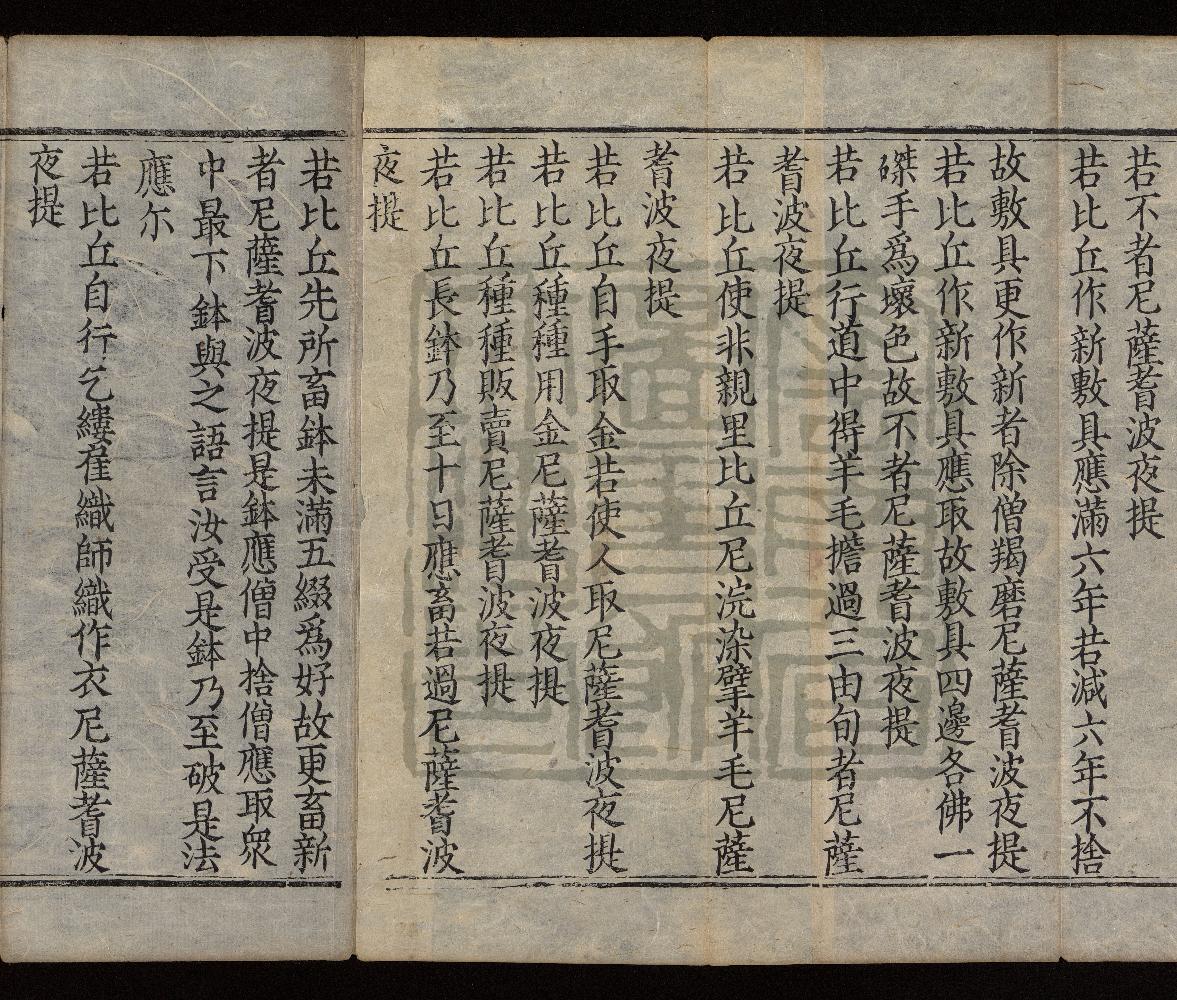 若不者尼薩耆波夜提
若比丘作新敷具應滿六年若減六年不捨
故敷具更作新者除僧羯磨尼薩耆波夜提
若比丘作新敷具應取故敷具四邊各佛一
磔手爲壞色故不者尼薩耆波夜提
若比丘行道中得羊毛擔過三由旬者尼薩
耆波夜提
若比丘使非親里比丘尼浣染擘羊毛尼薩
耆波夜提
若比丘自手取金若使人取尼薩耆波夜提
若比丘種種用金尼薩耆波夜提
若比丘種種販賣尼薩耆波夜提
若比丘長鉢乃至十日應畜若過尼薩耆波
夜提
若比丘先所畜鉢未滿五綴爲好故更畜新
者尼薩耆波夜提是鉢應僧中捨僧應取衆
中最下鉢與之語言汝受是鉢乃至破是法
應尒
若比丘自行乞縷雇織師織作衣尼薩耆波
夜提